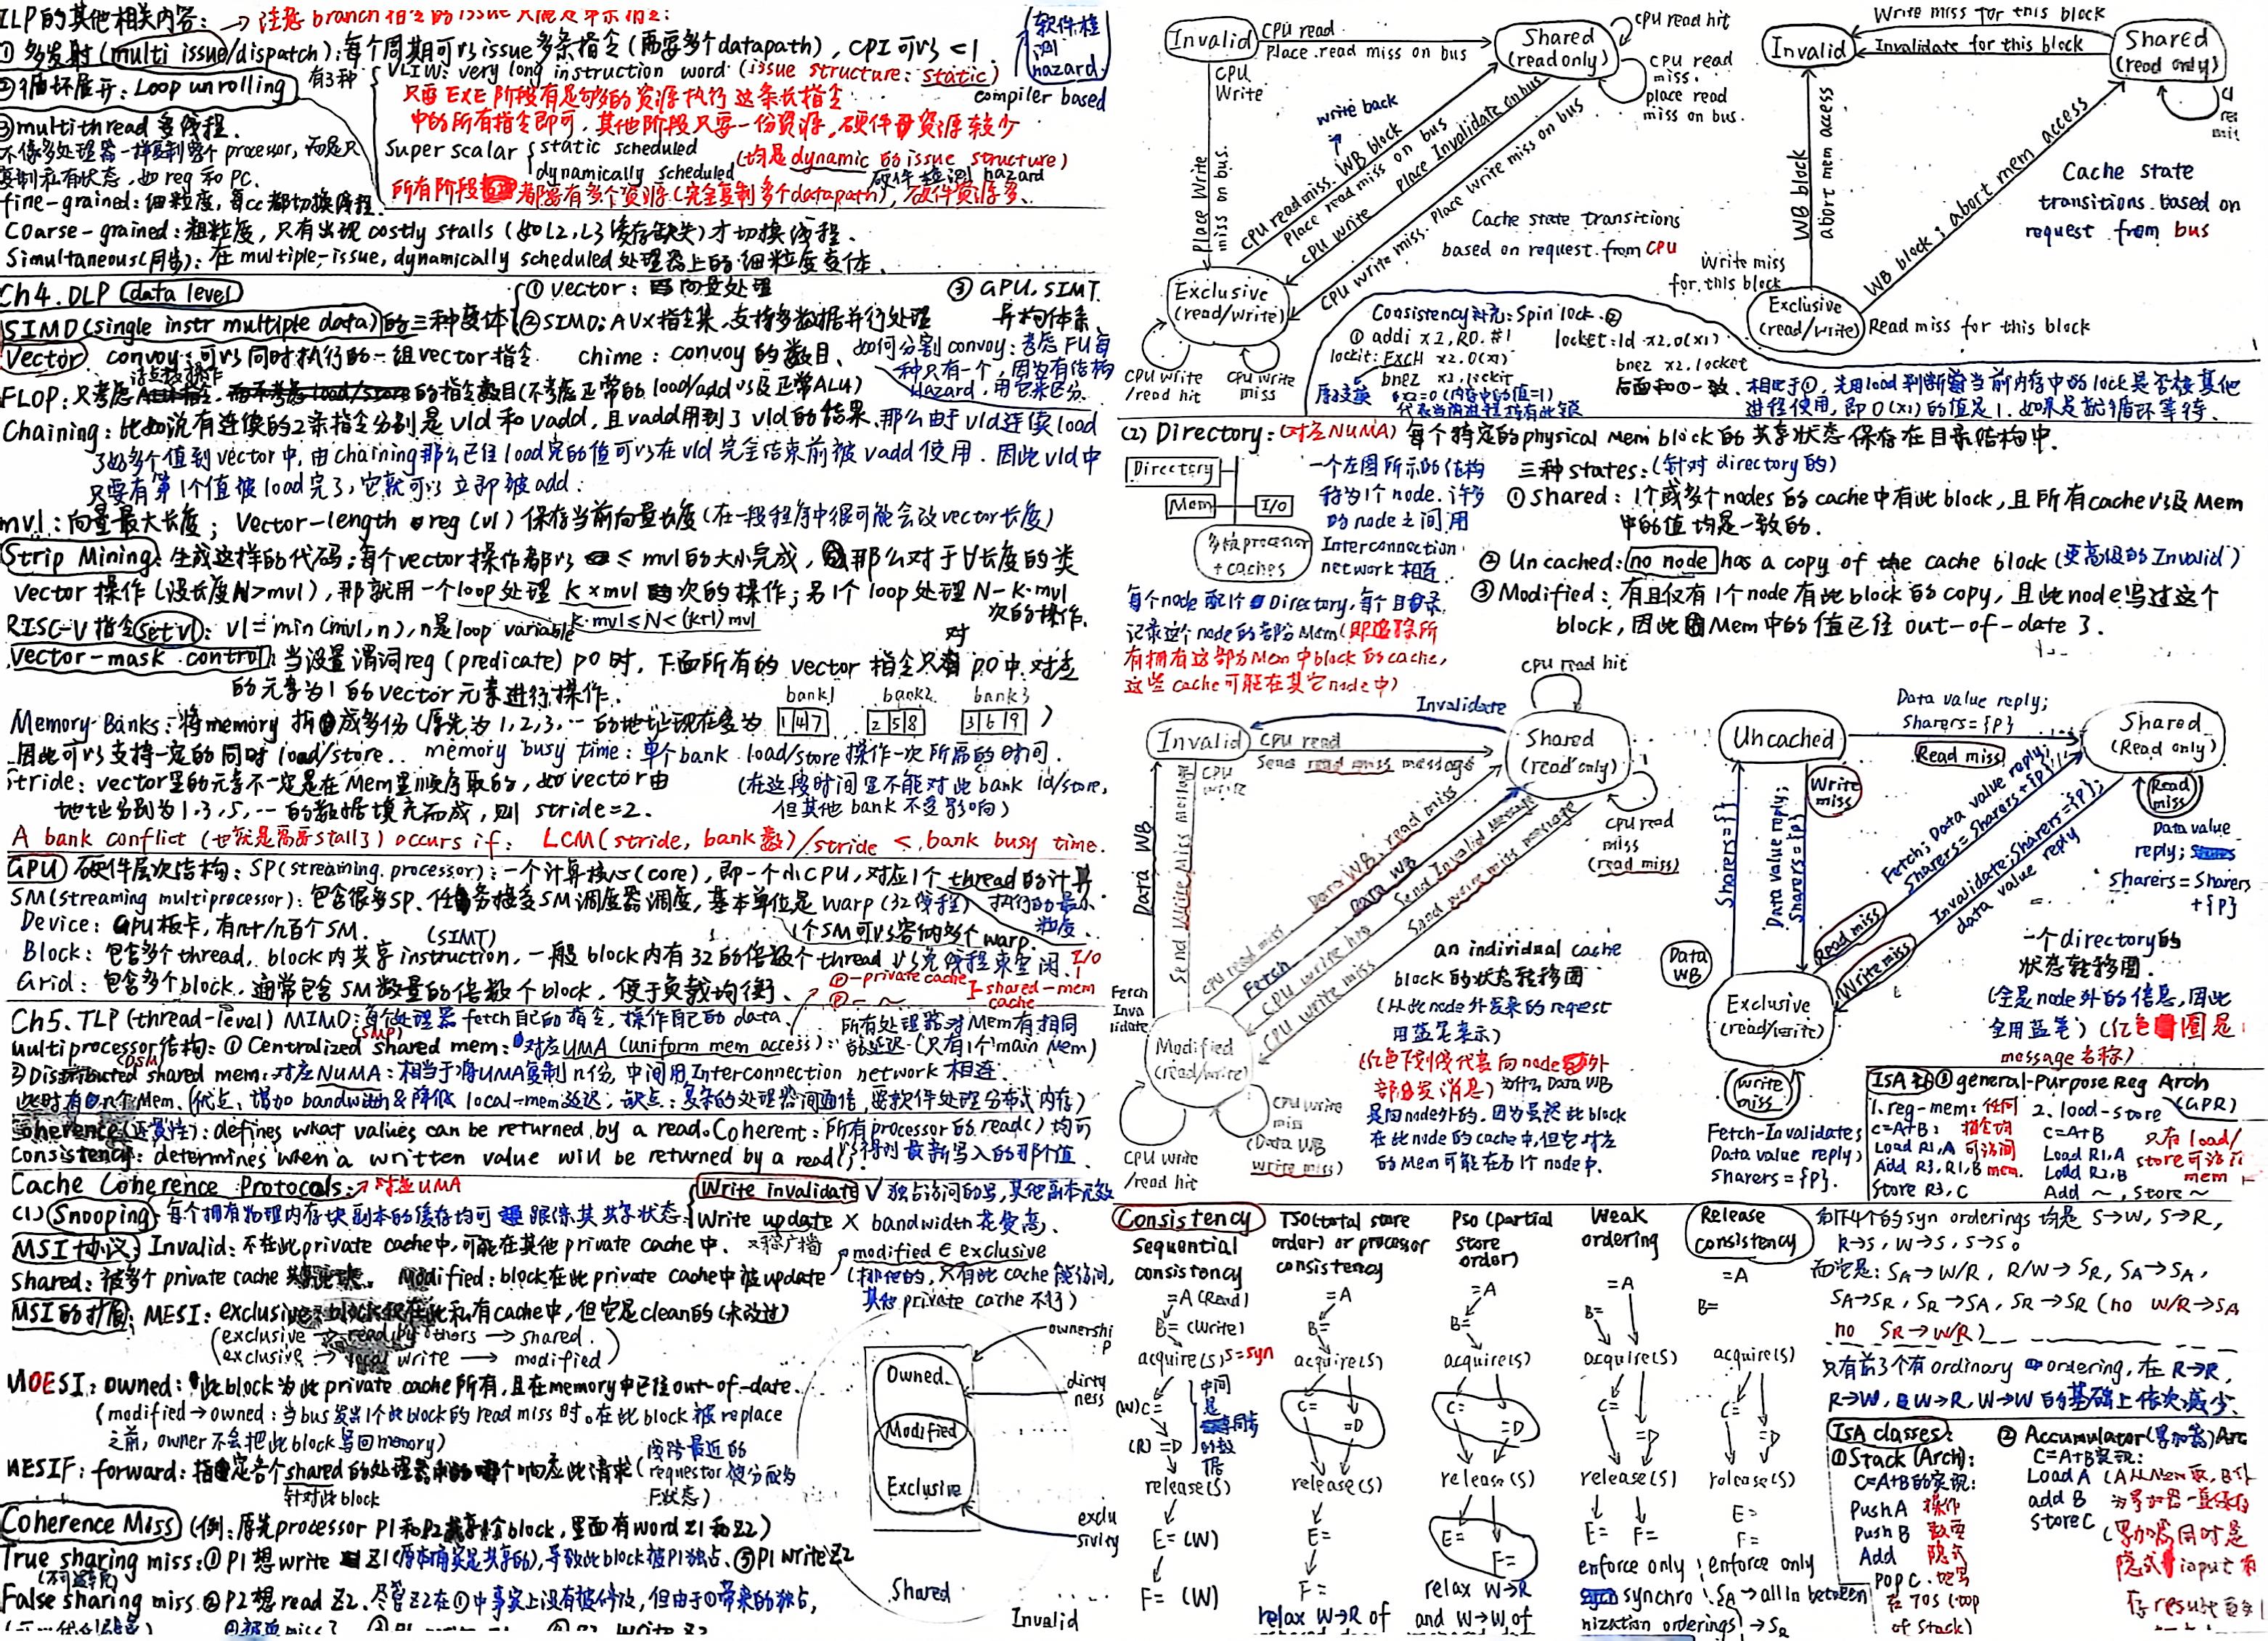 ILP的其他相关内容: → 注意 branch指令的issue只能是单条指令:
① 多发射(multi issue/dispatch):每个周期可以issue多条指令(需要多个datapath),CPI可以<1
②循环展开:Loop unrolling
③multithread 多线程.
不像多处理器一样复制整个processor,而是只
复制私有状态,如reg和PC.
有3种
VLIW: very long instruction word (issue structure: static)
软件检测hazard.
compiler based
只要EXE阶段有足够的资源执行这条长指令
中的所有指令即可,其他阶段只要一份资源,硬件资源较少
Super scalar
static scheduled
dynamically scheduled
(均是dynamic的issue structure)
硬件检测hazard
所有阶段都要有多个资源(完全复制多个datapath),硬件资源多、
fine-grained:细粒度,每cc都切换线程.
Coarse-grained:粗粒度,只有出现costly stalls(如L2,L3缓存缺失)才切换线程、
Simultaneous(同步):在multiple-issue, dynamically scheduled处理器上的细粒度变体、
Ch4. DLP (data level)
SIMD(single instr multiple data)的三种变体
① vector:向量处理
②SIMD:AVX指令集,支持多数据并行处理
③ GPU, SIMT.
异构体系、
Vector convoy:可以同时执行的一组vector指令. chime: convoy的数目、
如何分割convoy:考虑FU每
种只有一个,因为有结构
Hazard,用它来区分.
FLOP:只考虑浮点数操作的指令数目(不考虑正常的load/add以及正常ALU)
Chaining:比如说有连续的2条指令分别是vld和vadd,且vadd用到了vld的结果.那么由于vld连续load
了好多个值到vector中,由chaining那么已经load完的值可以在vld完全结束前被vadd使用.因此vld中
只要有第1个值被load完了,它就可以立即被add.
mvl:向量最大长度; Vector-length reg(vl)保存当前向量长度(在一段程序中很可能会改vector长度)
Strip Mining:生成这样的代码:每个vector操作都以≤mvl的大小完成,那么对于∀长度的类
vector操作(设长度N>mvl),那就用一个loop处理k×mvl次的操作;另1个loop处理N-k·mvl
次的操作.
k·mvl≤N<(k+1)mvl
RISC-V指令setvl: vl=min(mvl,n), n是loop variable
vector-mask control:当设置谓词reg(predicate) p0时,下面所有的vector指令只对p0中对应
的元素为1的vector元素进行操作.
bank1 bank2 bank3
Memory-Banks:将memory拆成多份(原先为1,2,3,…的地址现在变为 1 4 7 2 5 8 3 6 9 )
因此可以支持一定的同时load/store.. memory busy time:单个bank load/store操作一次所需的时间.
Stride: vector里的元素不一定是在Mem里顺序取的,如vector由
地址分别为1,3,5,…的数据填充而成,则stride=2.
(在这段时间里不能对此bank ld/store,
但其他bank不受影响)
A bank conflict (也就是需要stall了) occurs if: LCM(stride, bank数)/stride < bank busy time.
GPU 硬件层次结构:SP(streaming processor):一个计算核心(core),即一个小CPU,对应1个thread的计算
SM(streaming multiprocessor):包含很多SP.任务接受SM调度器调度,基本单位是warp(32线程)
执行的最小
粒度.
Device: GPU板卡,有几十/几百个SM.
(SIMT)
1个SM可以容纳多个warp.
Block:包含多个thread, block内共享instruction,一般block内有32的倍数个thread以免线程束空闲.
Grid:包含多个block,通常包含SM数量的倍数个block,便于负载均衡、
I/O
P-private cache
P- ~
shared-mem
cache
Ch5. TLP (thread-level) MIMD:每个处理器fetch自己的指令,操作自己的data
Multiprocessor结构: ① Centralized shared mem:(SMP)对应UMA(uniform mem access):
所有处理器对Mem有相同
的延迟(只有1个main Mem)
② Distributed shared mem:(DSM)对应NUMA:相当于将UMA复制n份,中间用Interconnection network相连.
此时有n个Mem.(优点:增加bandwidth&降低local-mem延迟,缺点:复杂的处理器间通信,要软件处理分布式内存)
Coherence(连贯性): defines what values can be returned by a read. Coherent:所有processor的read()均可
以得到最新写入的那个值.
Consistency: determines when a written value will be returned by a read()
Cache Coherence Protocols: → 对应UMA
(1) Snooping 每个拥有物理内存块副本的缓存均可跟踪其共享状态
Write invalidate √ 独占访问的写,其他副本无效
Write update × bandwidth花费高.
又称广播
MSI协议: Invalid:不在此private cache中,可能在其他private cache中.
modified ∈ exclusive
(排他的,只有此cache能访问,
其他private cache不行)
Shared:被多个private cache Modified: block在此private cache中被update
MSI的扩展: MESI: exclusive: block仅在此私有cache中,但它是clean的(未改过)
(exclusive → read by others → shared.)
(exclusive → local write → modified)
MOESI: owned:此block为此private cache所有,且在memory中已经out-of-date.
(modified→owned:当bus发出1个此block的read miss时。在此block被replace
之前,owner不会把此block写回memory)
MESIF: forward:指定各个shared的处理器中的哪个响应此请求
针对此block
(线路最近的
requestor被分配为
F状态)
Coherence Miss (例:原先processor P1和P2共享1个block,里面有word Z1和Z2)
True sharing miss:① P1想write Z1(原本确实是共享的),导致此block被P1独占、③P1 write Z2
False sharing miss ②P2想read Z2.尽管Z2在①中事实上没有被修改,但由于①带来的独占,
Owned
Modified
Exclusive
Shared
Invalid
ownership
dirtyness
exclusivity
Invalid
CPU read
Place read miss on bus
Shared
(read only)
CPU read hit
CPU read
miss.
place read
miss on bus.
CPU
Write
Place Write
miss on bus.
write back
CPU read miss. WB block
Place read miss on bus
CPU Write Place Invalidate on bus
CPU write miss. Place write miss on bus
Exclusive
(read/write)
CPU write
/read hit
CPU write
miss
Cache state transitions
based on request from CPU
Write miss for this block
Invalid
Invalidate for this block
Shared
(read only)
WB block
abort mem access
WB block; abort mem access
Cache state
transitions based on
request from bus
Write miss
for this block
Exclusive
(read/write)
Read miss for this block
Consistency补充:Spin lock.
① addi x2, R0, #1
lockit: EXCH x2, 0(x1)
bnez x2, lockit
原子交换
x2=0(内存中的值=1)
代表当前进程持有此锁
② lockit: ld x2, 0(x1)
bnez x2, lockit
后面和①一致.相比于①,先用load判断当前内存中的lock是否被其他
进程使用,即0(x1)的值是1.如果是就循环等待.
(2) Directory:(对应NUMA) 每个特定的physical mem block的共享状态保存在目录结构中.
Directory
Mem
I/O
多核processor
+ caches
一个左图所示的结构
称为1个node.许多
的node之间用
Interconnection
network相连
每个node配1个Directory,每个目录
记录这个node的部分Mem(即追踪所
有拥有这部分Mem中block的cache,
这些cache可能在其它node中)
三种states:(针对directory的)
① Shared: 1个或多个nodes的cache中有此block,且所有cache以及Mem
中的值均是一致的.
② Uncached: no node has a copy of the cache block (更高级的Invalid)
③ Modified:有且仅有1个node有此block的copy,且此node写过这个
block,因此Mem中的值已经out-of-date了.
Invalidate
CPU read hit
Invalid
CPU read
Send read miss message
Shared
(read only)
CPU read
miss
(read miss)
Data WB
Send Write Miss message
CPU
write
CPU read miss Data WB, read miss
Fetch Data WB
CPU write hit Send Invalid message
CPU write miss Send write miss message
Fetch
Invalidate
Modified
(read/write)
CPU write
/read hit
CPU write
miss
(Data WB
write miss)
an individual cache
block的状态转移图
(从此node外发来的request
用蓝笔表示)
(红色下划线代表向node外
部发消息) 为什么Data WB
是向node外的.因为虽然此block
在此node的cache中,但它对应
的Mem可能在另1个node中.
Uncached
Data value reply;
Sharers={P}
Read miss
Shared
(Read only)
Read
miss
Data value
reply;
Sharers = Sharers
+{P}
Sharers={}
Write
miss
Data value reply;
Sharers={P}
Fetch; Data value reply;
Sharers=Sharers+{P}
Invalidate; Sharers={P};
data value reply
Data
WB
Read miss
Write miss
Exclusive
(read/write)
write
miss
Fetch-Invalidates
Data value reply;
Sharers={P}.
一个directory的
状态转移图.
(全是node外的信息,因此
全用蓝笔)(红色圈是
message名称)
ISA ③ general-Purpose Reg Arch
(GPR)
1. reg-mem:任何
指令均
可访问
mem.
C=A+B:
Load R1, A
Add R3, R1, B
Store R3, C
2. load-store
C=A+B
Load R1, A
Load R2, B
Add ~, Store ~
只有load/
store可访问
mem
Consistency
Sequential
consistency
=A (Read)
B= (Write)
acquire(S) S=syn
(W) C=
(R) =D
中间
是
同步
的数
据
release(S)
E= (W)
F= (W)
TSO(total store
order) or processor
consistency
=A
B=
acquire(S)
C=
=D
release(S)
E=
F=
relax W→R of
PSO (partial
store
order)
=A
B=
acquire(S)
C=
=D
release(S)
E=
F=
relax W→R
and W→W of
Weak
ordering
=A
B=
acquire(S)
C=
=D
release(S)
E= F=
enforce only
synchro
nization orderings
Release
consistency
=A
B=
acquire(S)
C=
=D
release(S)
E=
F=
enforce only
SA→all in between
→SR
前4个的syn orderings均是 S→W, S→R,
R→S, W→S, S→S。
而它是: SA→W/R, R/W→SR, SA→SA,
SA→SR, SR→SA, SR→SR (no W/R→SA
no SR→W/R)
只有前3个有ordinary ordering,在R→R,
R→W, W→R, W→W的基础上依次减少.
ISA classes:
①Stack (Arch):
C=A+B的实现:
Push A
Push B
Add
Pop C.
操作
数
隐式
地写
在TOS (top
of stack)
② Accumulator(累加器)Arc
C=A+B实现:
Load A
add B
Store C